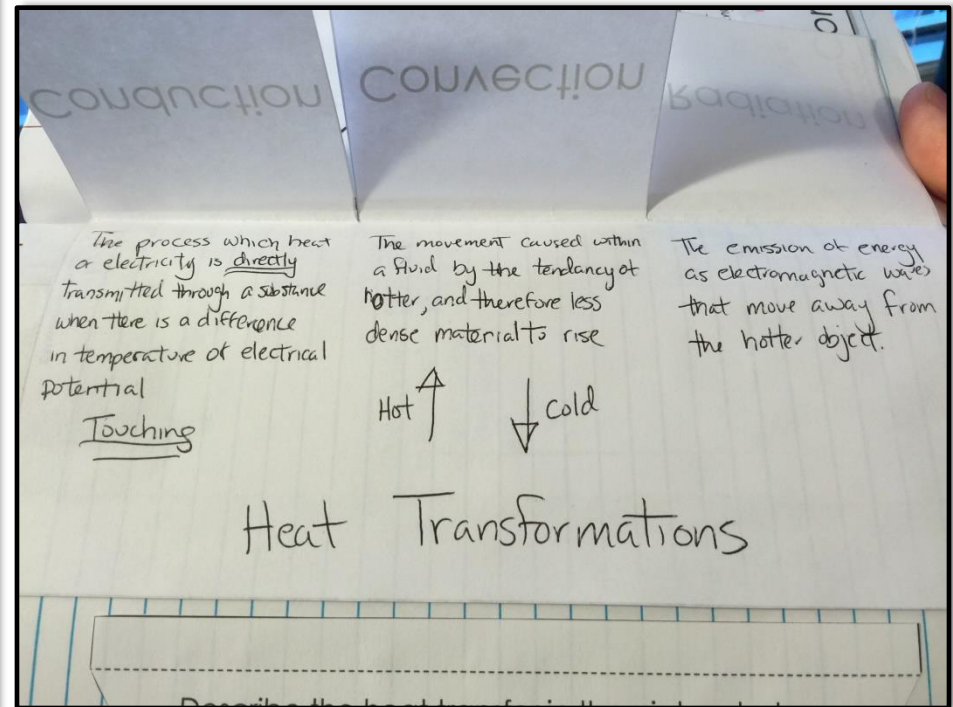 Conduction
Convection
Radiation
The process which heat
or electricity is directly
transmitted through a substance
when there is a difference
in temperature of electrical
potential
Touching
The movement caused within
a fluid by the tendancy of
hotter, and therefore less
dense material to rise
Hot
Cold
The emission of energy
as electromagnetic waves
that move away from
the hotter object.
Heat Transformations